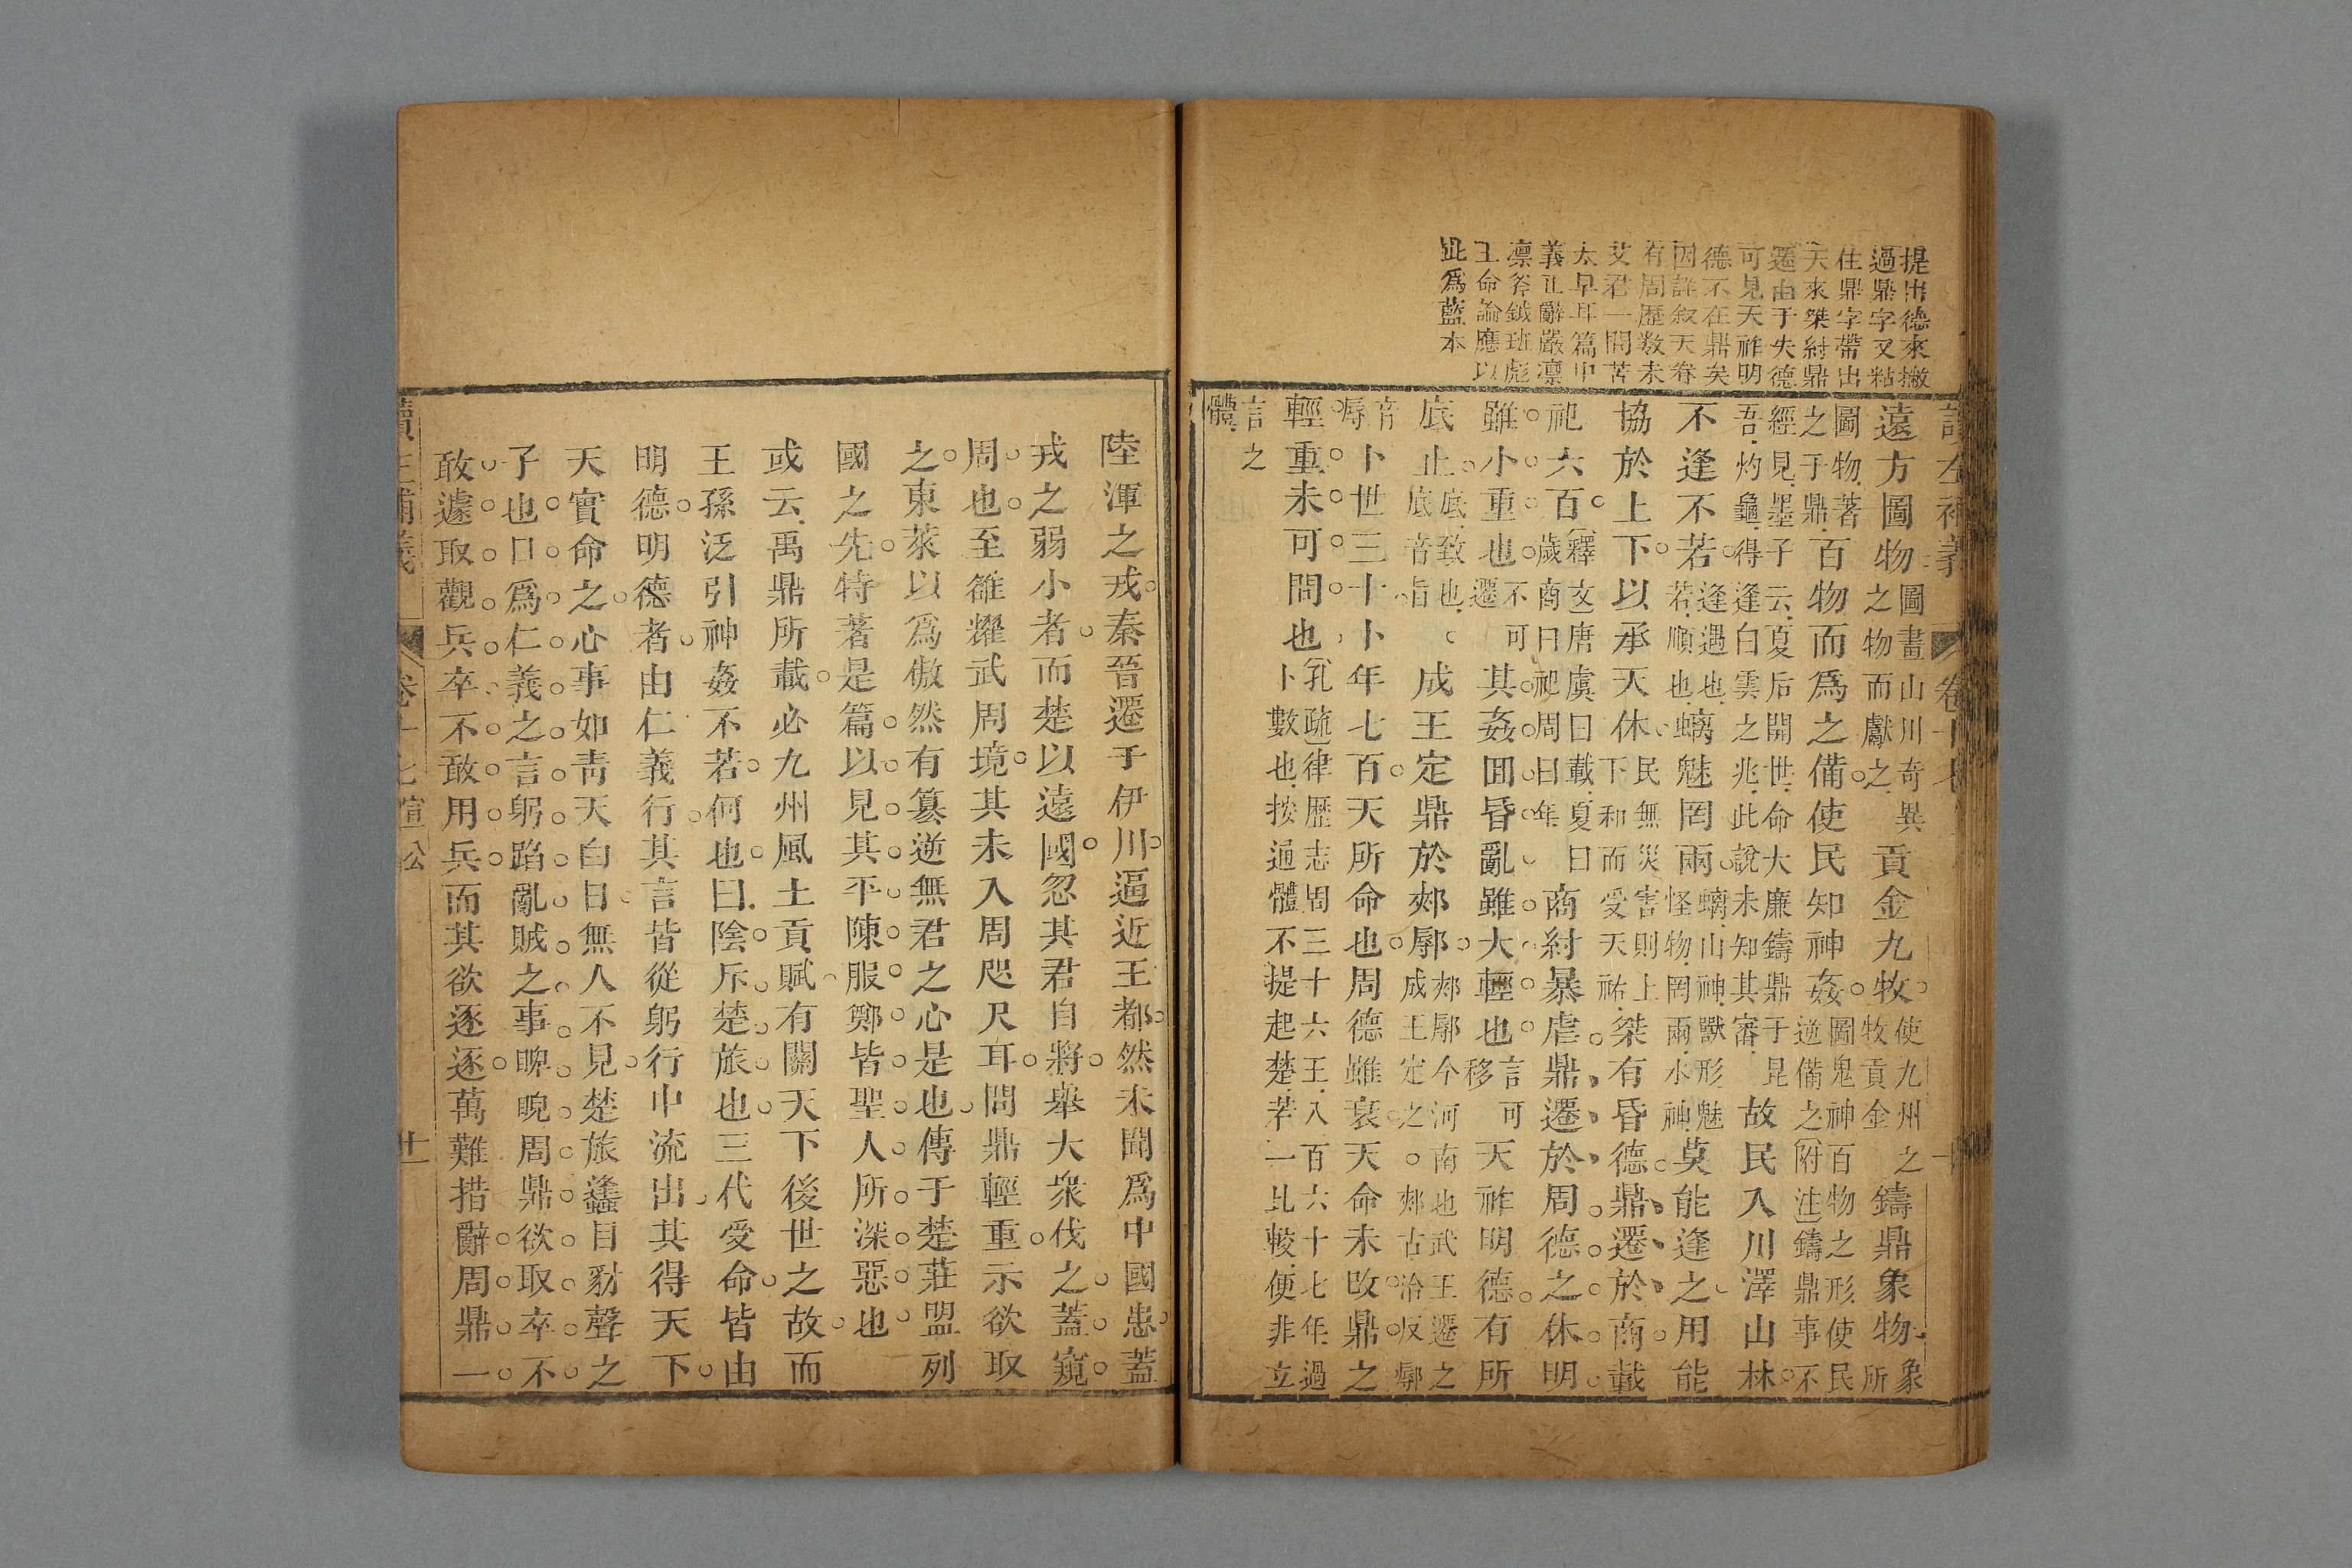 讀左補義 卷十七
提出德來撇
過鼎字又粘
住鼎字帶出
天來桀紂鼎
遷由于失德
可見天祚明
德不在鼎矣
因詳叙天眷
有周歷数未
艾君一問苦
太早耳篇中
義正辭嚴凛
凛斧鉞班彪
王命論應以
此為藍本
遠方圖物圖畫山川奇異之物而獻之貢金九牧使九州之牧貢金鑄鼎象物象所
圖物著之于鼎百物而為之備使民知神姦圖鬼神百物之形使民逆備之附注鑄鼎事不
經見墨子云夏后開世命大廉鑄鼎于昆吾灼龜得逢白雲之兆此說未知其審故民入川澤山林
不逢不若逢遇也若順也螭魅罔兩螭山神獸形魅怪物罔兩水神莫能逢之用能
協於上下以承天休民無災害則上下和而受天祐桀有昏德鼎遷於商載
祀六百釋文唐虞曰載夏曰歲商曰祀周曰年商紂暴虐鼎遷於周德之休明
雖小重也不可遷其姦回昏亂雖大輕也言可移天祚明德有所
底止底致也底音旨成王定鼎於郟鄏郟鄏今河南也武王遷之成王定之郟古洽反鄏
音辱卜世三十卜年七百天所命也周德雖衰天命未改鼎之
輕重未可問也孔疏律歷志周三十六王八百六十七年過卜數也按通體不提起楚芉一比較便非立
言之體
陸渾之戎秦晉遷于伊川逼近王都然未聞為中國患蓋
戎之弱小者而楚以遠國忽其君自將舉大衆伐之蓋窺
周也至雒耀武周境其未入周咫尺耳問鼎輕重示欲取
之東萊以為傲然有篡逆無君之心是也傳于楚莊盟列
國之先特著是篇以見其平陳服鄭皆聖人所深惡也
或云禹鼎所載必九州風土貢賦有關天下後世之故而
王孫泛引神姦不若何也曰陰斥楚旅也三代受命皆由
明德明德者由仁義行其言皆從躬行中流出其得天下
天實命之心事如青天白日無人不見楚旅蠭目豺聲之
子也日為仁義之言躬蹈亂賊之事睥睨周鼎欲取卒不
敢遽取觀兵卒不敢用兵而其欲逐逐萬難措辭周鼎一
讀左補義 卷十七 宣公 廿一